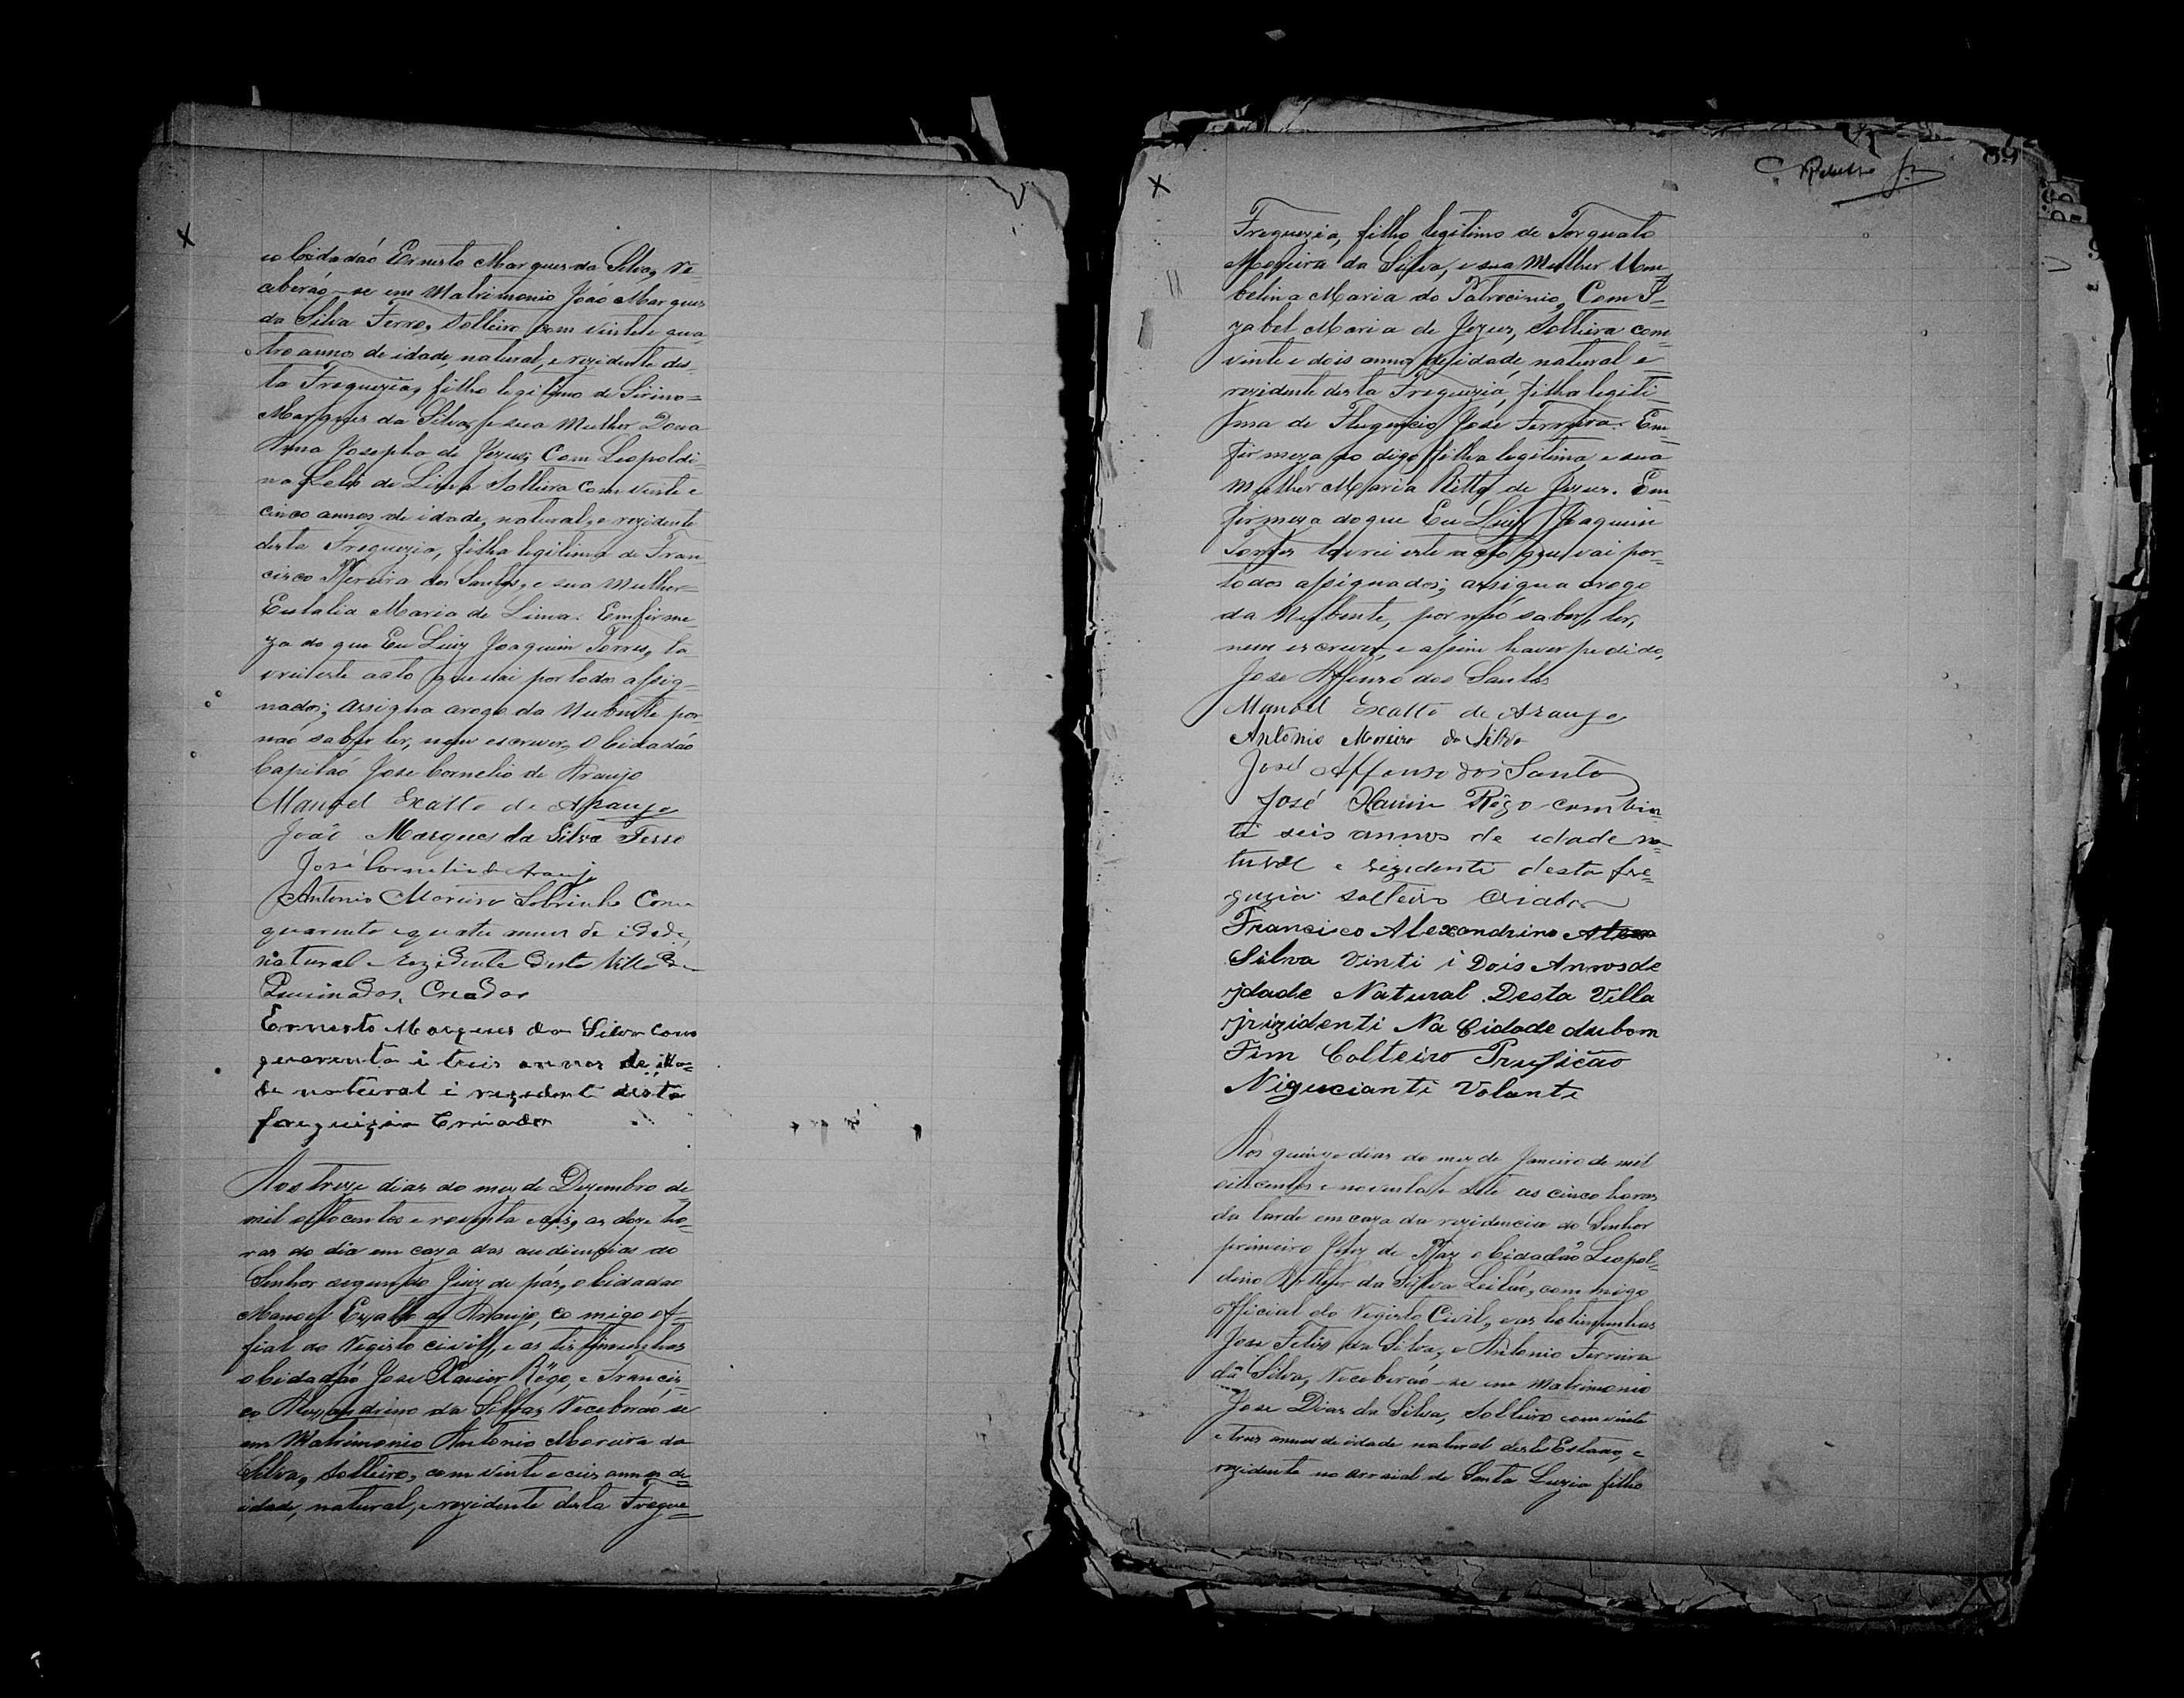 eo Cidadaó Ernesto Marques da Silva, Re-
ceberáo-se em Matrimonio Joáo Marques
da Silva Ferro, Solteiro com vinte e qua-
tro annos de idade, natural, e rezidente des-
ta Freguezia, filho legitimo de Sirino=
Marques da Silva, e sua Mulher Dona
Anna Josepha de Jezus, Com Leopoldi-
na de Lima Solteira com vinte e
cinco annos de idade, natural, e rezidente
desta Freguezia, filha legitima de Fran
cisco Pereira dos Santos, e sua Mulher=
Eutalia Maria de Lima. Em firme-
za do que Eu Luiz Joaquim Torres, la
vrei este acto que vai por todos assig-
nados; assigna arogo da Nubente por-
naó saber ler, nem escrever, o Cidadáo
Capitaó Jose Cornelio de Araujo
Manoel Exalto de Araujo
Joáo Marques da Silva Ferro
José Cornelio de Araujo
Antonio Moreira Sobrinho Com
quarenta e quatro annos de idade,
natural e Rezidente desta Villa de
Queimados, Creador
Ernesto Marques da Silva com
quarenta i treis annos de ida=
de natural i rezedente desta
freguizia Criador
Aos treze dias do mez de Dezembro de-
mil oitocentos e noventa e seis, as doze ho-
ras do dia em caza das audiencias do
Senhor segundo Juiz de páz, o Cidadao
Manoel Exalto de Araujo, co migo of-
ficial do Registo civil, e as testimunhas
o Cidadáo Jose Xavier Rêgo, e Francis-
co Alexandrino da Silva, Receberáo se
em Matrimonio Antonio Moreira da
Silva, Solteiro, com vinte e ceis annos de
idade, natural, e rezidente desta Fregue=
89
Freguezia, filho legitimo de Torquato
Moreira da Silva, e sua Mulher Um-
belina Maria do Patrocinio, Com I-
zabel Maria de Jezus, Solteira com
vinte e dois annos de idade, natural e
rezidente desta Freguezia, filha legiti-
ma de Flugencio Jose Ferreira. Em-
firmeza do digo filha legitima e sua
Mulher Maria Ritta de Jezus. Em
firmeza do que Eu Luiz Joaquim
Torres lavrei este acto que vai por-
todos assignados; assigna arogo
da Nubente, por náo saber, ler,
nem escrever, e assim haver pedido,
Jose Affonso dos Santos
Manoel Exalto de Araujo,
Antonio Moreira da Silva
José Affonso dos Santos
José Xavier Rêgo com vin-
te seis annos de idade na-
tural e rezidente desta fre-
guzia solteiro Criador
Francisco Alexandrino
Silva Vinti i Dois Annos de
idade Natural Desta Villa
irizidenti Na Cidade dubom
Fim Colteiro Prufição
Niguscianti Volanti
Aos quinze dias do mez de Janeiro de mil
oitecentos e noventa e sete as cinco horas
da tarde em caza da rezidencia do Senhor
primeiro Juiz de Paz o Cidadaõ Leopol-
dino Arthur da Silva Leitáo, com migo
official do Registo Civil, e as testimunhas
Jose Felis da Silva, e Antonio Ferreira
da Silva, Receberaó-se em Matrimonio
Jose Dias da Silva, Solteiro com vinte
e trez annos de idade natural deste Estado, e
rezidente no arraial de Santa Luzia filho